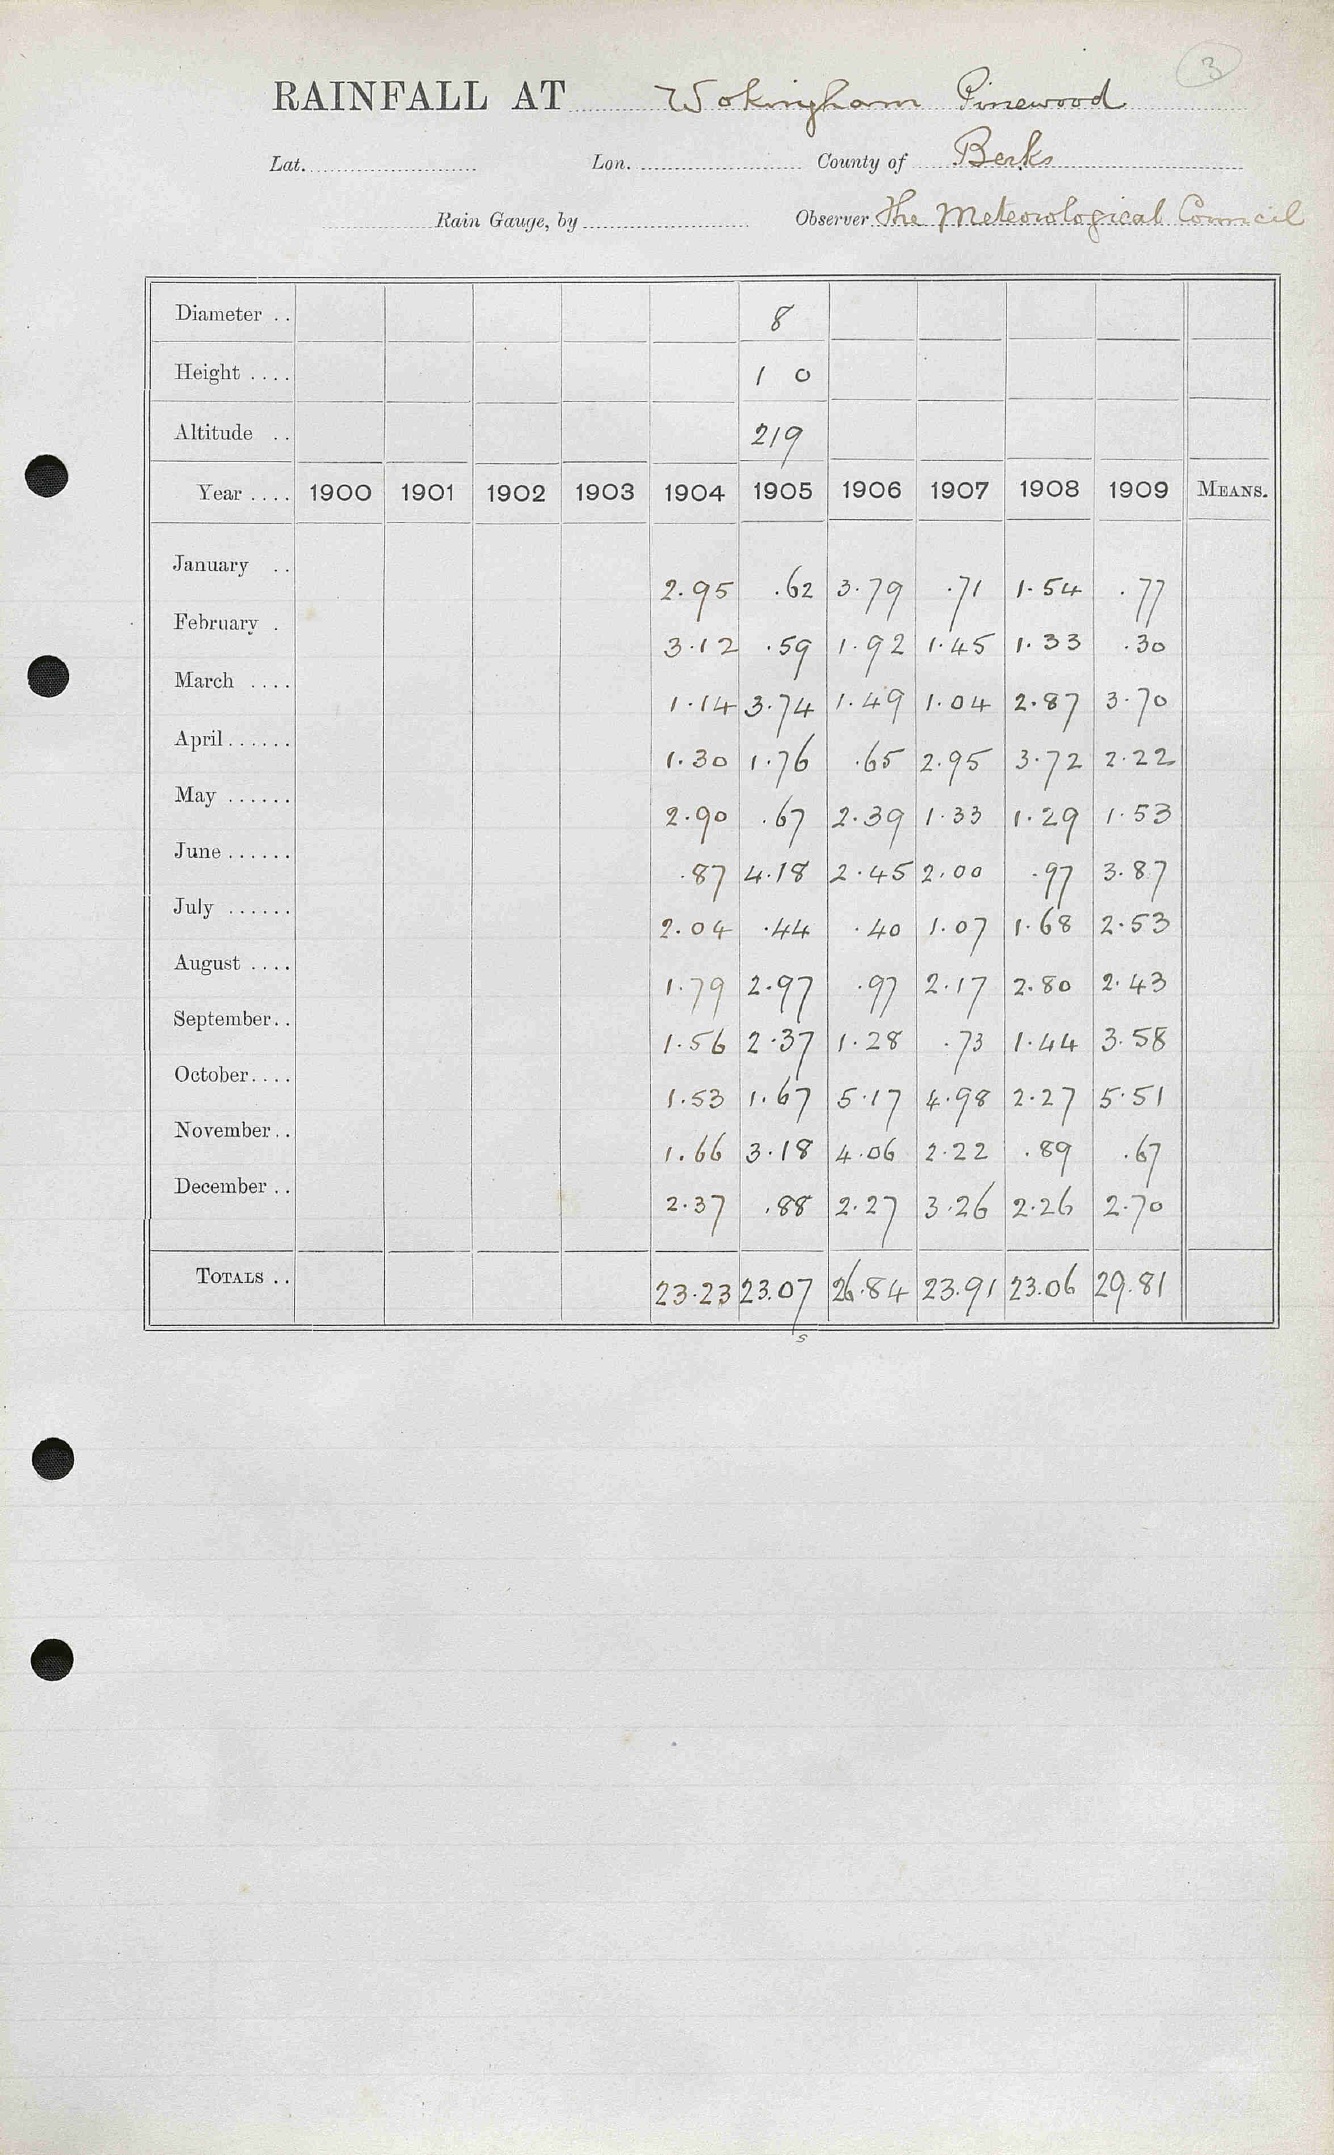 3
RAINFALL AT Wokingham Pinewood
Lat. Lon. County of Berks
Rain Gauge, by Observer The Meteorological Council
Diameter .. 8
Height .... 1 0
Altitude .. 219
Year .... 1900 1901 1902 1903 1904 1905 1906 1907 1908 1909 MEANS.
January .. 2.95 .62 3.79 .71 1.54 .77
February . 3.12 .59 1.92 1.45 1.33 .30
March .... 1.14 3.74 1.49 1.04 2.87 3.70
April...... 1.30 1.76 .65 2.95 3.72 2.22
May ...... 2.90 .67 2.39 1.33 1.29 1.53
June ...... .87 4.18 2.45 2.00 .97 3.87
July ...... 2.04 .44 .40 1.07 1.68 2.53
August .... 1.79 2.97 .97 2.17 2.80 2.43
September.. 1.56 2.37 1.28 .73 1.44 3.58
October.... 1.53 1.67 5.17 4.98 2.27 5.51
November.. 1.66 3.18 4.06 2.22 .89 .67
December .. 2.37 .88 2.27 3.26 2.26 2.70
TOTALS .. 23.23 23.07 26.84 23.91 23.06 29.81
s